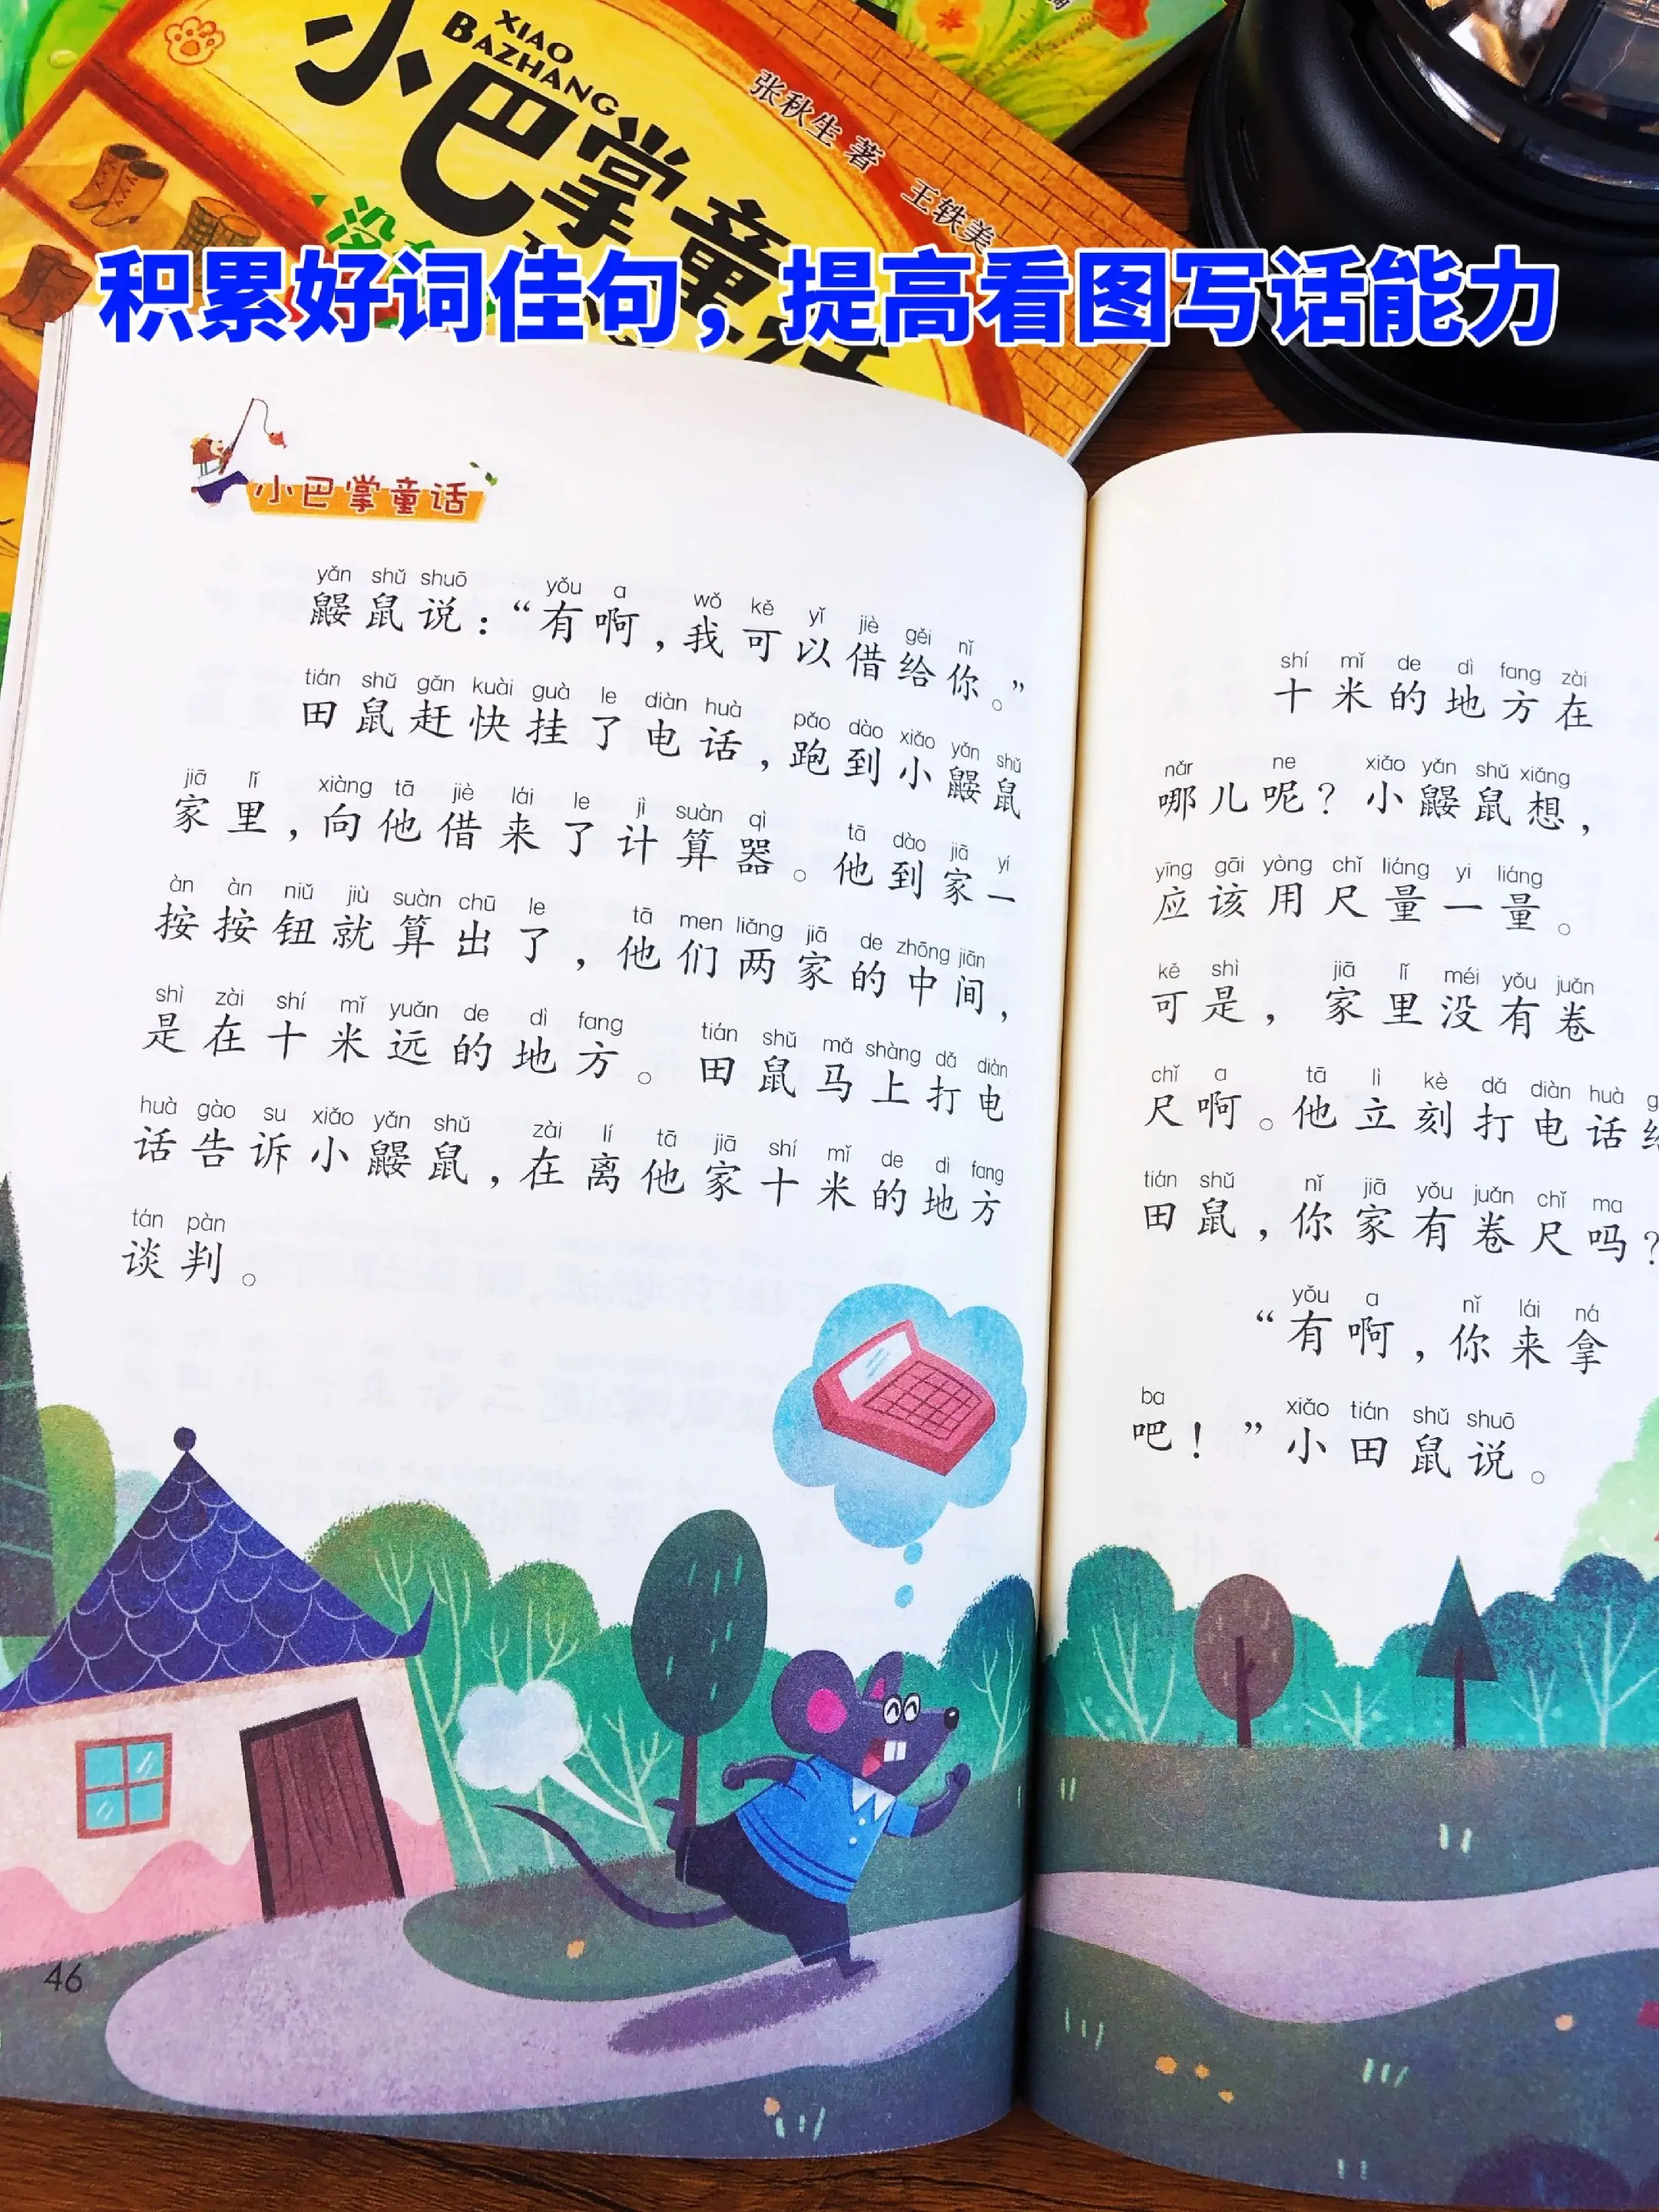 XIAO
BAZHANG
小巴掌童话
张秋生 著 王轶美
积累好词佳句，提高看图写话能力
小巴掌童话
yǎn shǔ shuō yǒu ɑ wǒ kě yǐ jiè gěi nǐ
鼹鼠说：“有啊，我可以借给你。”
tián shǔ gǎn kuài guà le diàn huà pǎo dào xiǎo yǎn shǔ
田鼠赶快挂了电话，跑到小鼹鼠
jiā lǐ xiàng tā jiè lái le jì suàn qì tā dào jiā yí
家里，向他借来了计算器。他到家一
àn àn niǔ jiù suàn chū le tā men liǎng jiā de zhōng jiān
按按钮就算出了，他们两家的中间，
shì zài shí mǐ yuǎn de dì fang tián shǔ mǎ shàng dǎ diàn
是在十米远的地方。田鼠马上打电
huà gào su xiǎo yǎn shǔ zài lí tā jiā shí mǐ de dì fang
话告诉小鼹鼠，在离他家十米的地方
tán pàn
谈判。
46
shí mǐ de dì fang zài
十米的地方在
nǎr ne xiǎo yǎn shǔ xiǎng
哪儿呢？小鼹鼠想，
yīng gāi yòng chǐ liáng yi liáng
应该用尺量一量。
kě shì jiā lǐ méi yǒu juǎn
可是，家里没有卷
chǐ ɑ tā lì kè dǎ diàn huà g
尺啊。他立刻打电话给
tián shǔ nǐ jiā yǒu juǎn chǐ ma
田鼠，你家有卷尺吗？
yǒu ɑ nǐ lái ná
“有啊，你来拿
ba xiǎo tián shǔ shuō
吧！”小田鼠说。